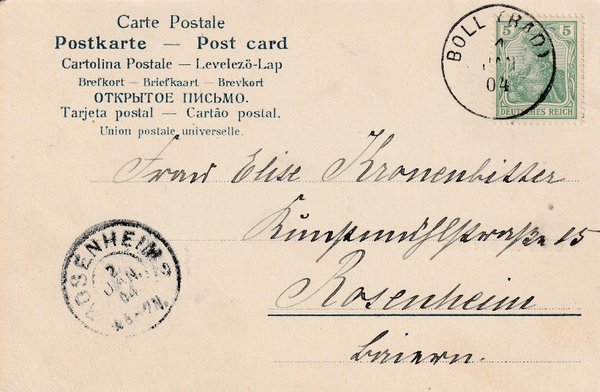 Carte Postale
Postkarte — Post card
Cartolina Postale — Levelező-Lap
Brefkort — Briefkaart — Brevkort
ОТКРЫТОЕ ПИСЬМО.
Tarjeta postal — Cartão postal.
Union postale universelle.
BOLL (BAD)
JAN
04
5 5
DEUTSCHES REICH
Frau Elise Kronenbitter
Kunstmühlstraße 15
Rosenheim
Baiern.
ROSENHEIM
2
JAN.
04